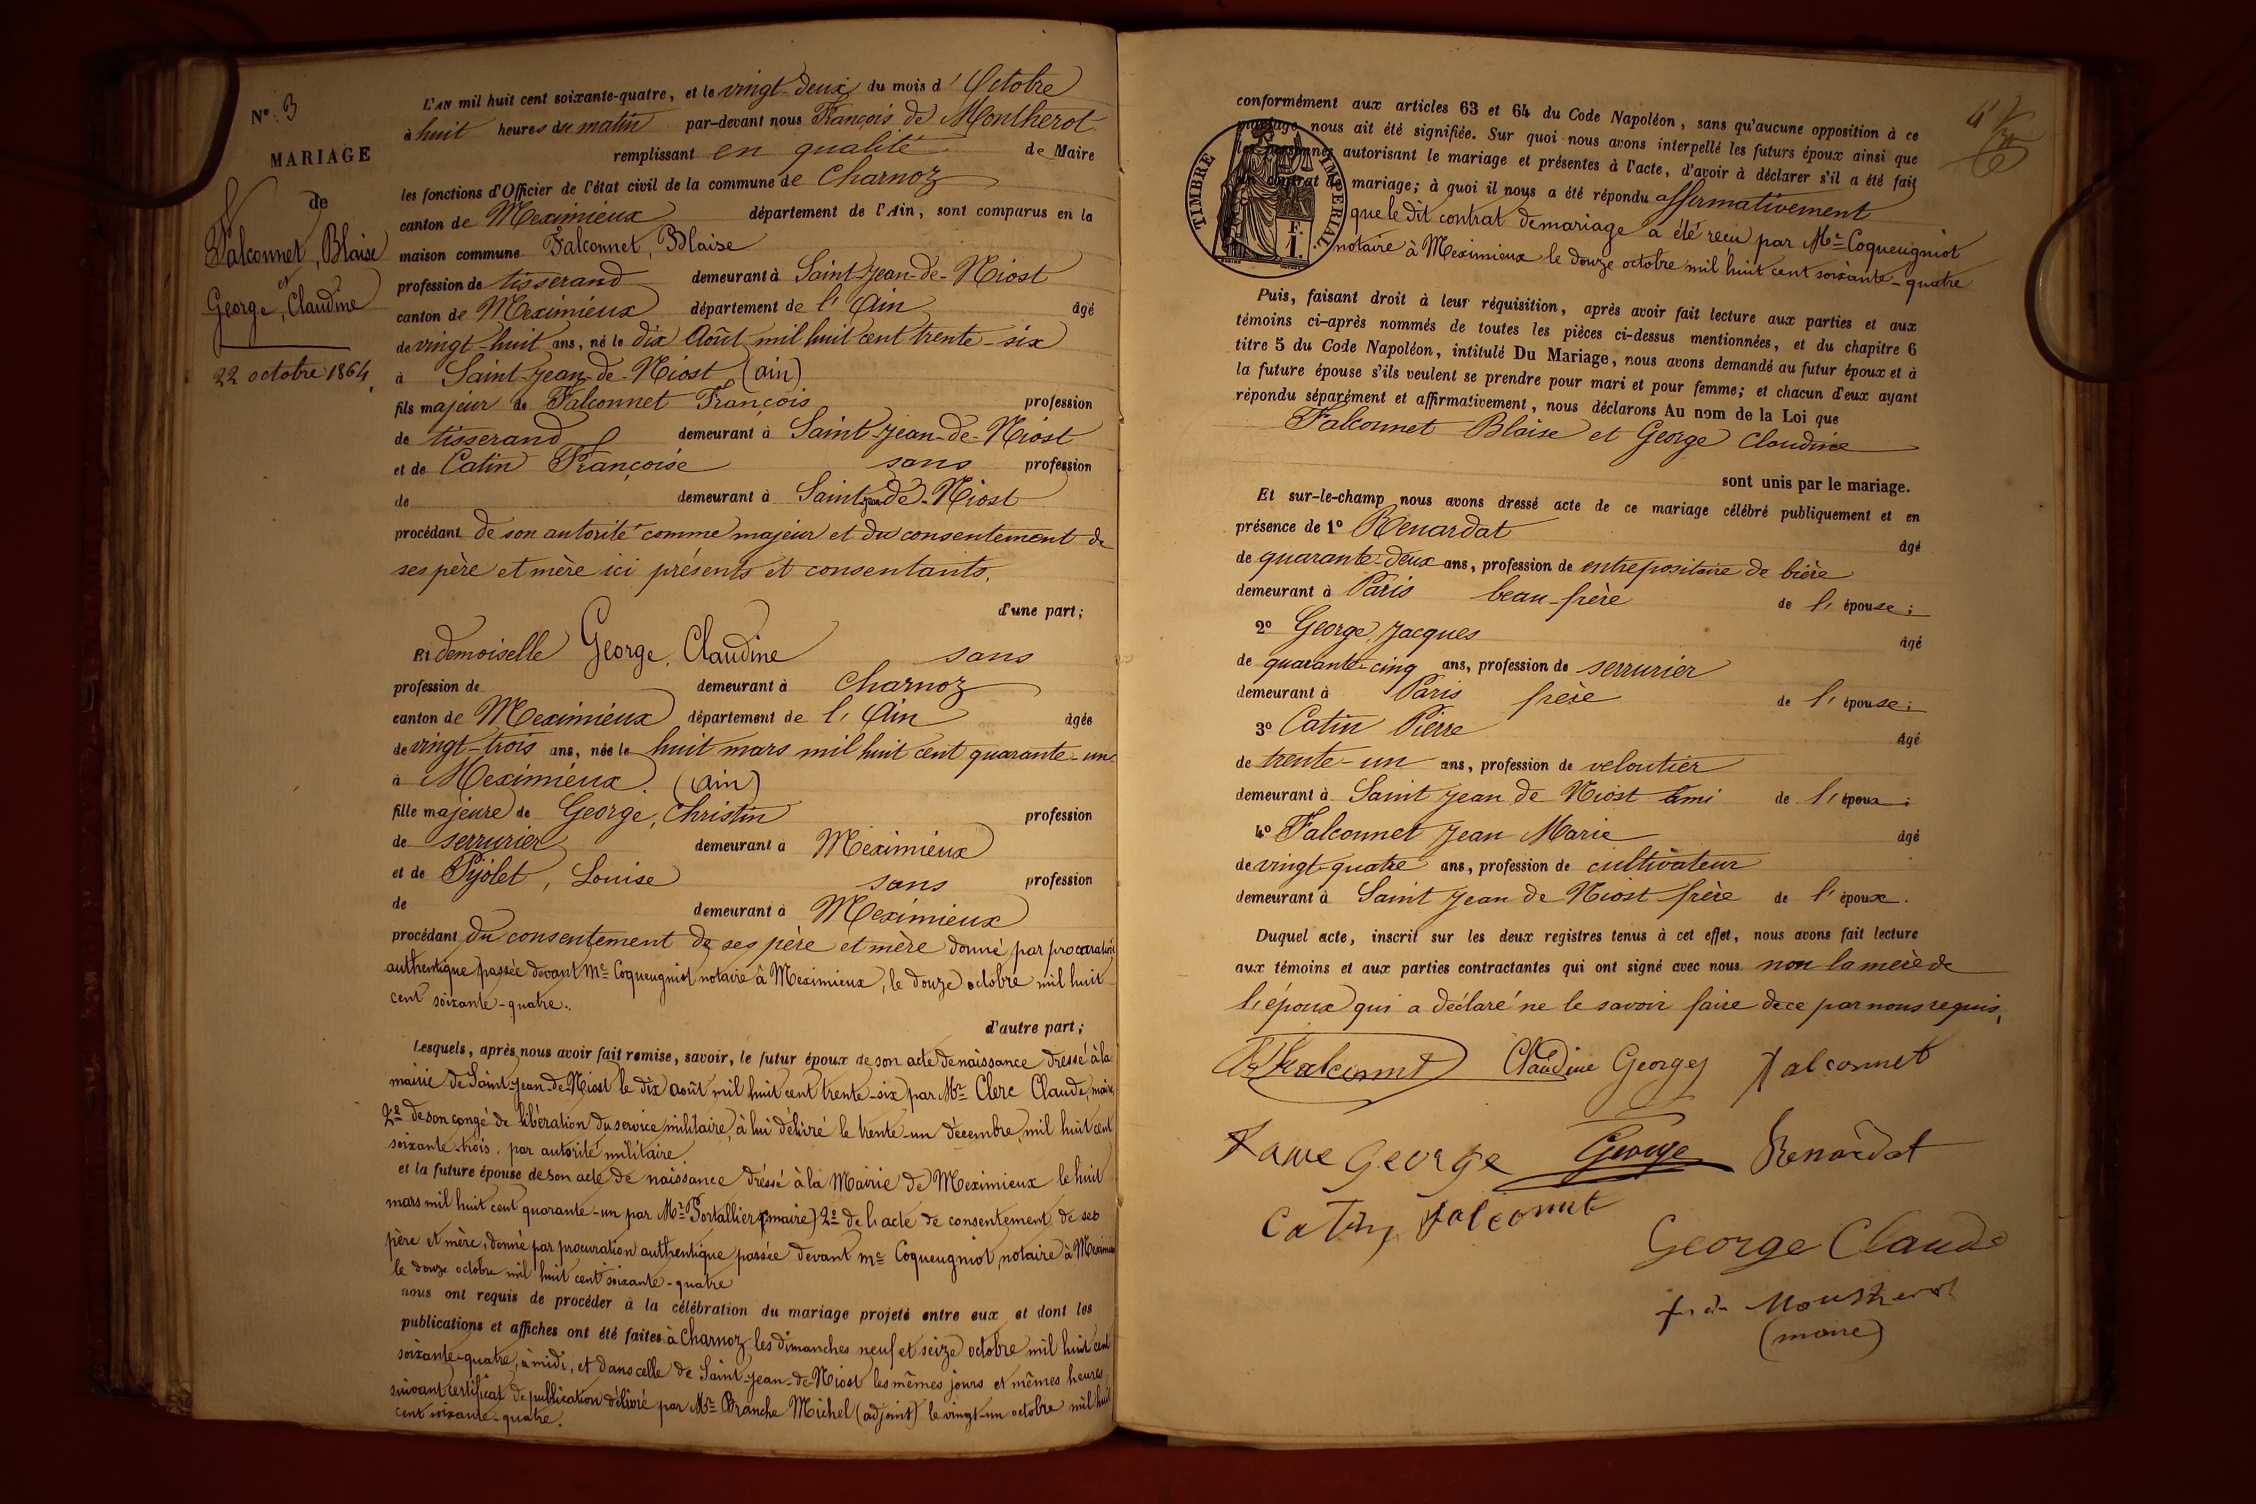 N° 3
MARIAGE
de
Falconnet, Blaise
et
George, Claudine
22 octobre 1864
L'AN mil huit cent soixante-quatre, et le vingt-deux du mois d'Octobre
à huit heures du matin par-devant nous François de Montherot
remplissant en qualité de Maire
les fonctions d'Officier de l'état civil de la commune de Charnoz
canton de Meximieux département de l'Ain, sont comparus en la
maison commune Falconnet, Blaise
profession de tisserand demeurant à Saint-Jean-de-Niost
canton de Meximieux département de l'Ain âgé
de vingt-huit ans, né le dix Août mil huit cent trente-six
à Saint-Jean-de-Niost (ain)
fils majeur de Falconnet François profession
de tisserand demeurant à Saint-Jean-de-Niost
et de Catin Françoise sans profession
de demeurant à Saint Jean de-Niost
procédant de son autorité comme majeur et du consentement de
ses père et mère ici présents et consentants.
d'une part;
Et demoiselle George, Claudine sans
profession de demeurant à Charnoz
canton de Meximieux département de l'Ain âgée
de vingt-trois ans, née le huit mars mil huit cent quarante-un
à Meximieux. (ain)
fille majeure de George, Christin profession
de serrurier demeurant à Meximieux
et de Pijolet, Louise sans profession
de demeurant à Meximieux
procédant du consentement de ses père et mère donné par procuration
authentique passée devant Me Coqueugniot notaire à Meximieux, le douze octobre mil huit
cent soixante-quatre.
d'autre part;
Lesquels, après nous avoir fait remise, savoir, le futur époux de son acte de naissance dressé à la
mairie de Saint-Jean-de-Niost le dix août mil huit cent trente-six par Mr Clerc Claude, maire,
2° de son congé de libération du service militaire, à lui délivré le trente-un décembre, mil huit cent
soixante-trois, par autorité militaire.
et la future épouse de son acte de naissance dréssé à la Mairie de Meximieux le huit
mars mil huit cent quarante-un par Mr Portallier (maire) 2° de l'acte de consentement de ses
père et mère, donné par procuration authentique passée devant me Coqueugniot, notaire à Meximieux
le douze octobre mil huit cent soixante-quatre
nous ont requis de procéder à la célébration du mariage projeté entre eux et dont les
publications et affiches ont été faites à Charnoz les dimanches neuf et seize octobre mil huit cent
soixante-quatre, à midi, et dans celle de Saint-Jean-de-Niost les mêmes jours et mêmes heures
suivant certificat de publication délivré par Mr Branche Michel (adjoint) le vingt-un octobre mil huit
cent soixante-quatre.
conformément aux articles 63 et 64 du Code Napoléon, sans qu'aucune opposition à ce
mariage nous ait été signifiée. Sur quoi nous avons interpellé les futurs époux ainsi que
les personnes autorisant le mariage et présentes à l'acte, d'avoir à déclarer s'il a été fait
un contrat de mariage; à quoi il nous a été répondu affirmativement
TIMBRE IMPERIAL
F. 1.
que le dit contrat de mariage a été reçu par Mr Coqueugniot
notaire à Meximieux le douze octobre mil huit cent soixante-quatre
Puis, faisant droit à leur réquisition, après avoir fait lecture aux parties et aux
témoins ci-après nommés de toutes les pièces ci-dessus mentionnées, et du chapitre 6
titre 5 du Code Napoléon, intitulé Du Mariage, nous avons demandé au futur époux et à
la future épouse s'ils veulent se prendre pour mari et pour femme; et chacun d'eux ayant
répondu séparément et affirmativement, nous déclarons Au nom de la Loi que
Falconnet Blaise et George Claudine
sont unis par le mariage.
Et sur-le-champ nous avons dressé acte de ce mariage célébré publiquement et en
présence de 1° Renardat âgé
de quarante-deux ans, profession de entrepositaire de bière
demeurant à Paris beau-frère de l'épouse;
2° George, Jacques âgé
de quarante-cinq ans, profession de serrurier
demeurant à Paris frère de l'épouse;
3° Catin Pierre âgé
de trente-un ans, profession de veloutier
demeurant à Saint Jean de Niost ami de l'époux;
4° Falconnet Jean Marie âgé
de vingt-quatre ans, profession de cultivateur
demeurant à Saint Jean de Niost frère de l'époux.
Duquel acte, inscrit sur les deux registres tenus à cet effet, nous avons fait lecture
aux témoins et aux parties contractantes qui ont signé avec nous non la mère de
l'époux qui a déclaré ne le savoir faire de ce par nous requis.
Falconnet Claudine George Falconnet
George George Renardat
Catin falconnet
George Claude
fr de Montherot
(maire)